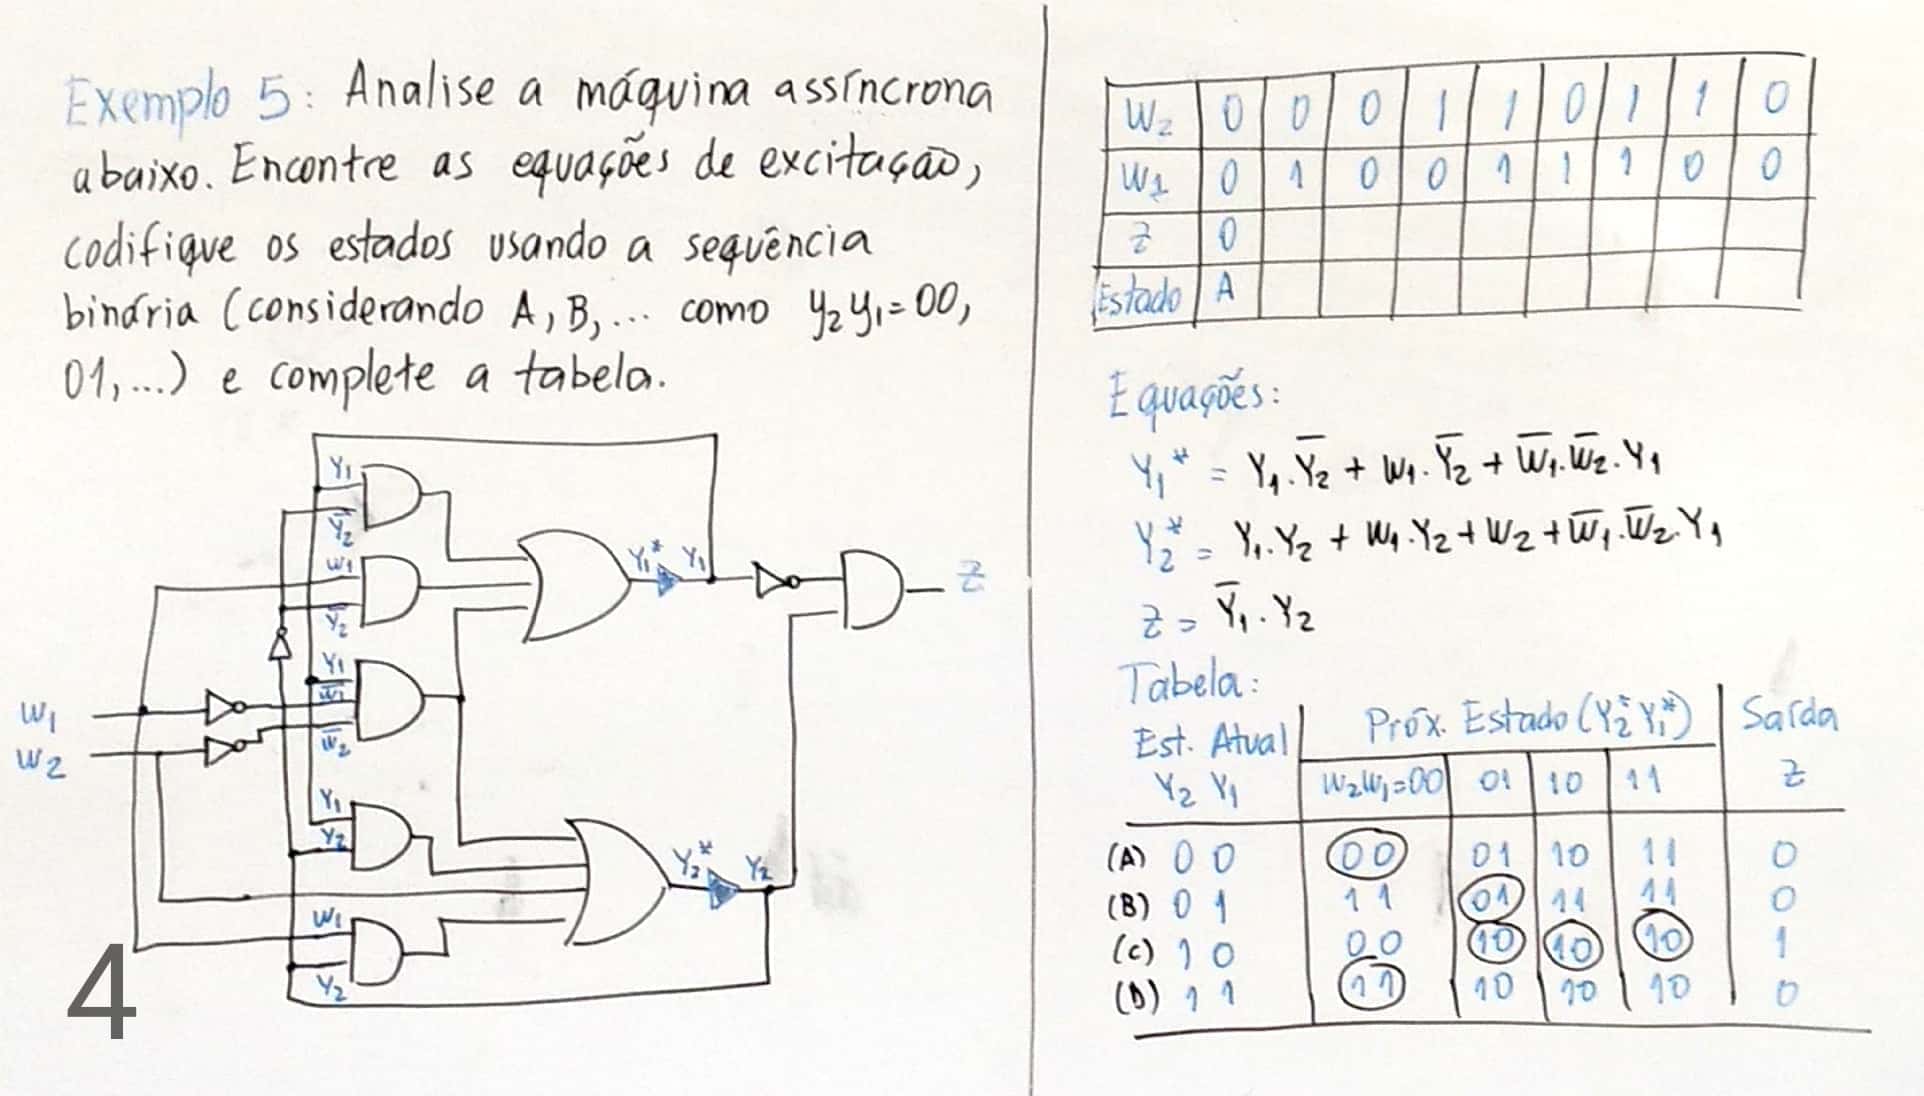 Exemplo 5: Analise a máquina assíncrona
abaixo. Encontre as equações de excitação,
codifique os estados usando a sequência
binária (considerando A, B, ... como y₂y₁=00,
01,...) e complete a tabela.
Y₁
Y̅₂
W₁
Y̅₂
Y₁
W̅₁
W̅₂
Y₁
Y₂
W₁
Y₂
W₁
W₂
Y₁* Y₁
Y₂* Y₂
Z
4
W₂ 0 0 0 1 1 0 1 1 0
W₁ 0 1 0 0 1 1 1 0 0
Z 0
Estado A
Equações:
Y₁* = Y₁.Y̅₂ + W₁.Y̅₂ + W̅₁.W̅₂.Y₁
Y₂* = Y₁.Y₂ + W₁.Y₂ + W₂ + W̅₁.W̅₂.Y₁
Z = Y̅₁.Y₂
Tabela:
Est. Atual Próx. Estado (Y₂*Y₁*) Saída
Y₂ Y₁ W₂W₁=00 01 10 11 Z
(A) 0 0 00 01 10 11 0
(B) 0 1 11 01 11 11 0
(C) 1 0 00 10 10 10 1
(D) 1 1 11 10 10 10 0